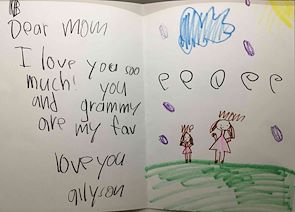 Dear Mom
I love you soo
much! you
and grammy
are my fav
love you
allyson
me
mom